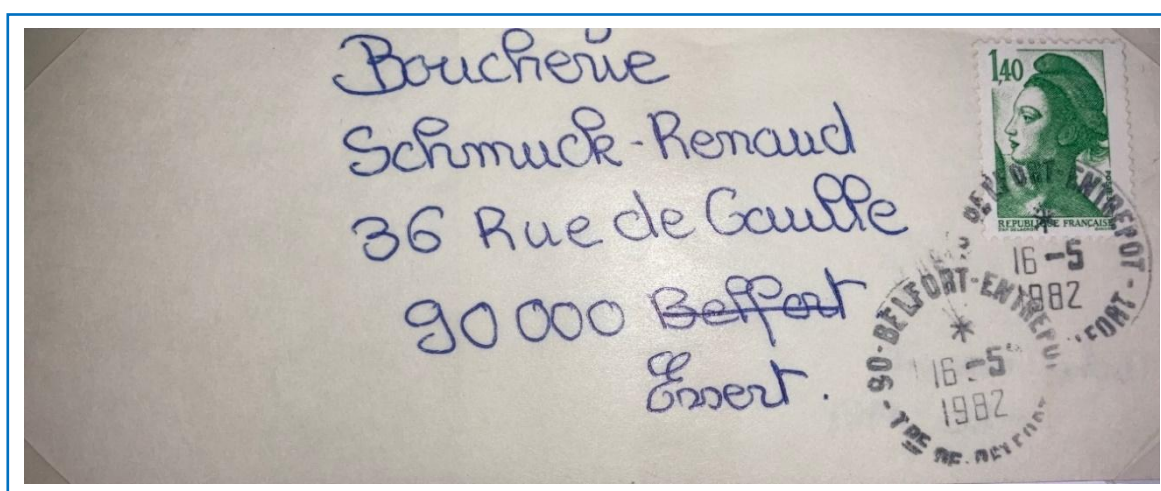 Boucherie
Schmuck-Renaud
36 Rue de Gaulle
90 000 Belfort
Essert.
1,40
REPUBLIQUE FRANÇAISE
BELFORT-ENTREPOT
16 -5
1982
90-BELFORT-ENTREPOT
*
16 -5
1982
TRE DE BELFORT